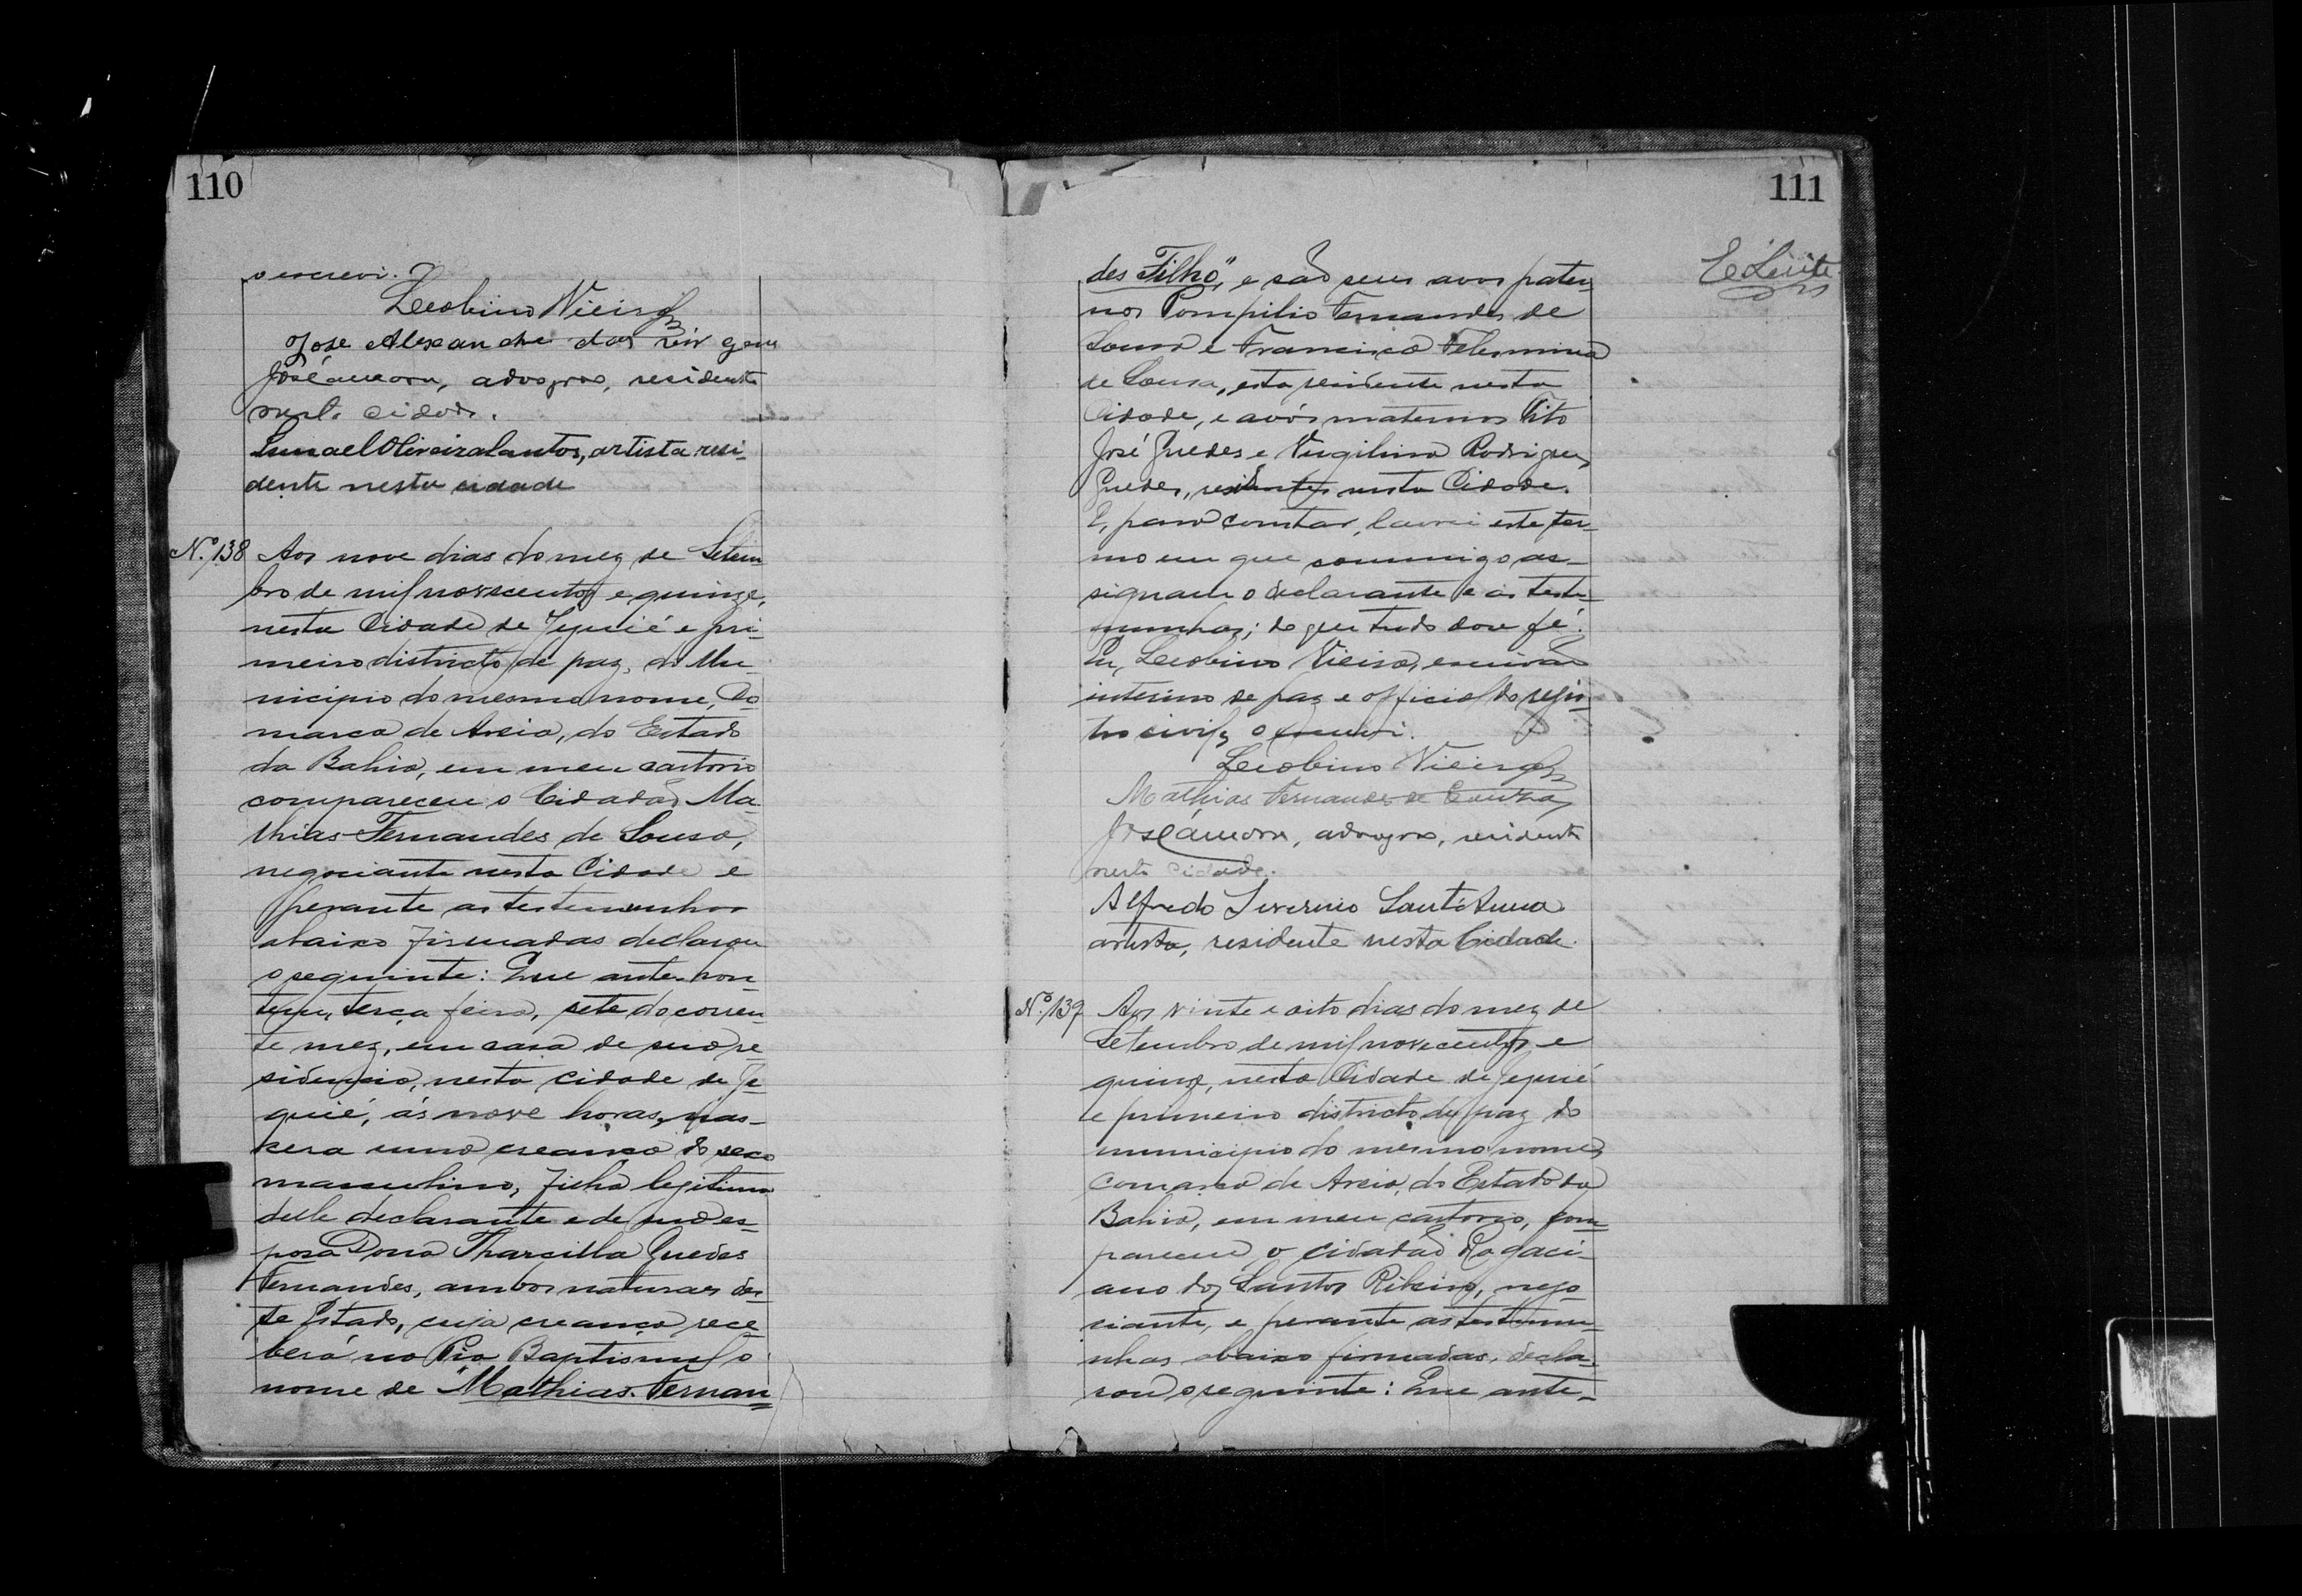 110
o escrevi.
Leobino Vieira
José Alexandre dos Reis
José amorn, advogado, residente
nesta cidade.
Ismael Oliveira Santos, artista resi-
dente nesta cidade
Nº 138 Aos nove dias do mez de Setem
bro de mil novecentos e quinze,
nesta Cidade de Jequié e pri-
meiro districto de paz, do Mu-
nicipio do mesmo nome, Co-
marca de Areia, do Estado
da Bahia, em meu cartorio
compareceu o Cidadão Ma-
thias Fernandes de Sousa,
negociante nesta Cidade e
perante as testemunhas
abaixo firmadas declarou
o seguinte: Que ante-hon-
tem, terça feira, sete do corren-
te mez, em casa de sua re-
sidencia, nesta cidade de Je-
quié, ás nove horas, nas-
cera uma creança do sexo
masculino, filho legitimo
delle declarante e de sua es-
posa Dona Tharcilla Guedes
Fernandes, ambos naturaes des-
te Estado, cuja creança rece-
berá na Pia Baptismal o
nome de "Mathias Fernan
111
des Filho", e são seus avos pater-
nos Pompilio Fernandes de
Sousa e Francisca Felismina
de Sousa, esta residente nesta
Cidade, e avós maternos Tito
José Guedes e Virgilina Rodrigues
Guedes, residentes nesta Cidade.
E, para constar, lavrei este ter-
mo em que commigo as-
signam o declarante e as teste-
munhas; do que tudo dou fé.
Eu, Leobino Vieira, escrivão
interino de paz e official do regis-
tro civil, o escrevi.
Leobino Vieira
Mathias Fernandes de Souza
José amorn, advogado, residente
nesta cidade.
Alfredo Severino Sant'Anna
artista, residente nesta Cidade.
Nº 139 Aos vinte e oito dias do mez de
Setembro de mil novecentos e
quinze, nesta Cidade de Jequié
e primeiro districto de paz do
municipio do mesmo nome,
Comarca de Areia, do Estado da
Bahia, em meu cartorio, com-
pareceu o cidadão Rogaci-
ano dos Santos Ribeiro, nego-
ciante, e perante as testemu-
nhas abaixo firmadas, decla-
rou o seguinte: Que ante-